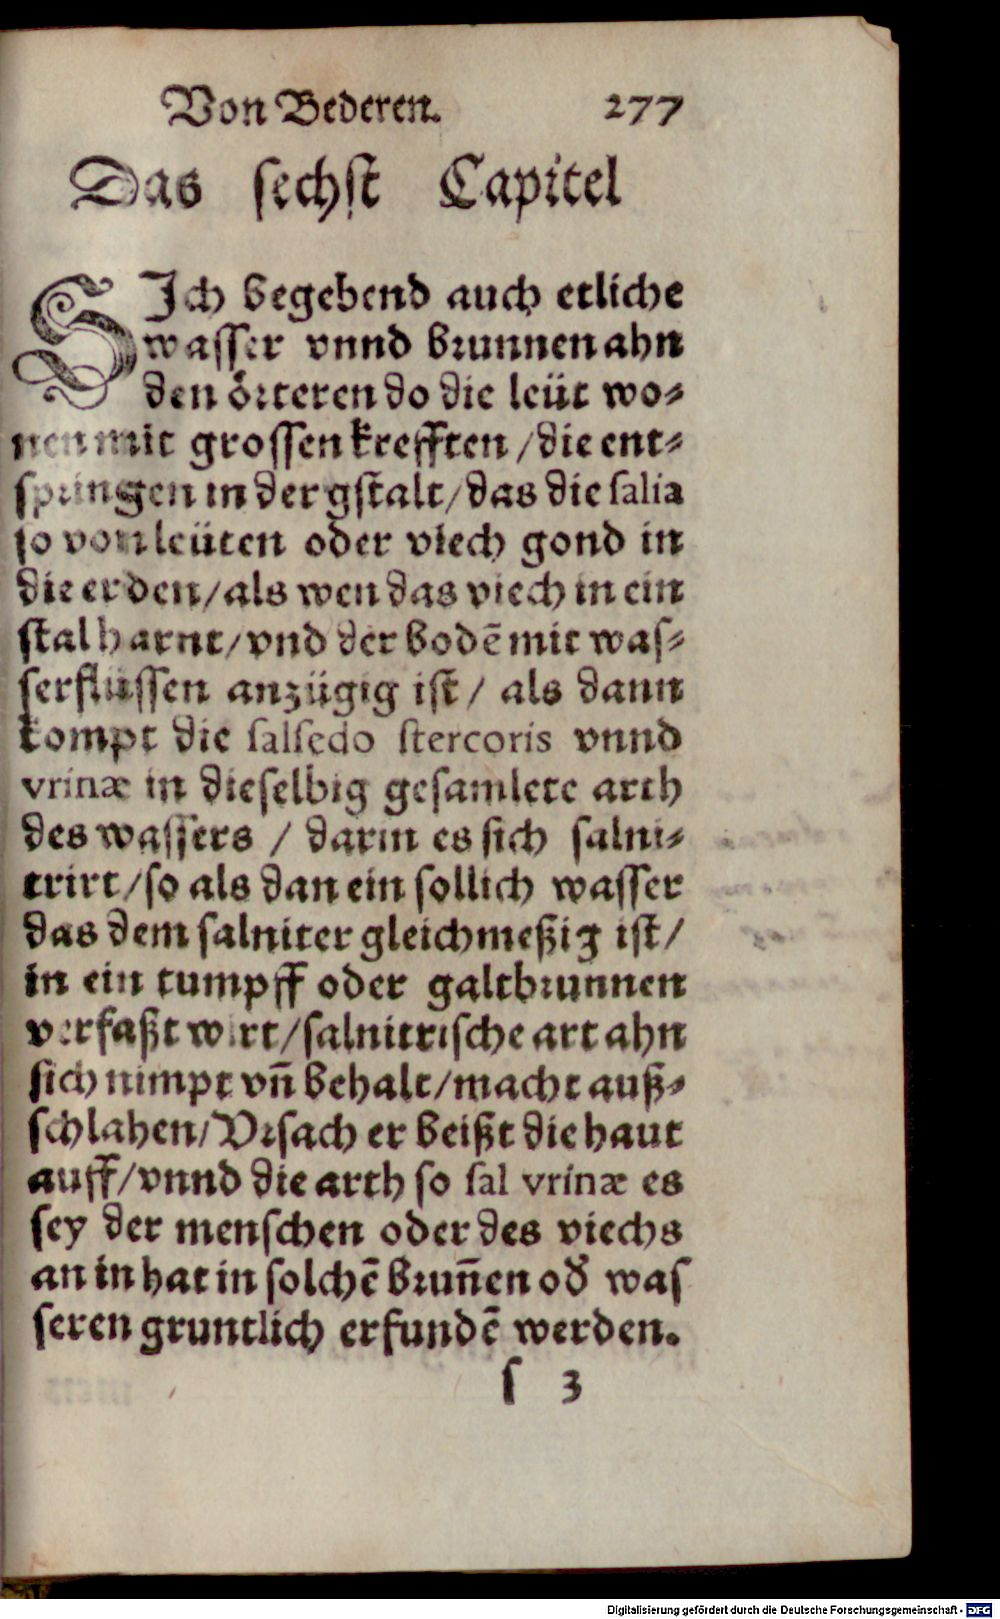 Von Bederen. 277
Das sechst Capitel
SIch begebend auch etliche
wasser vnnd brunnen ahn
den örteren do die leüt wo⸗
nen mit grossen krefften/die ent⸗
springen in der gstalt/das die salia
so von leüten oder viech gond in
die erden/als wen das viech in ein
stal harnt/vnd der bodē mit was⸗
serflüssen anzügig ist/ als dann
kompt die salsedo stercoris vnnd
vrinæ in dieselbig gesamlete arth
des wassers / darin es sich salni⸗
trirt/so als dan ein sollich wasser
das dem salniter gleichmeßig ist/
in ein tumpff oder galtbrunnen
verfaßt wirt/salnitrische art ahn
sich nimpt vn̄ behalt/macht auß⸗
schlahen/Vrsach er beißt die haut
auff/vnnd die arth so sal vrinæ es
sey der menschen oder des viechs
an in hat in solchē brun̄en od̕ was
seren gruntlich erfundē werden.
s 3
Digitalisierung gefördert durch die Deutsche Forschungsgemeinschaft - DFG